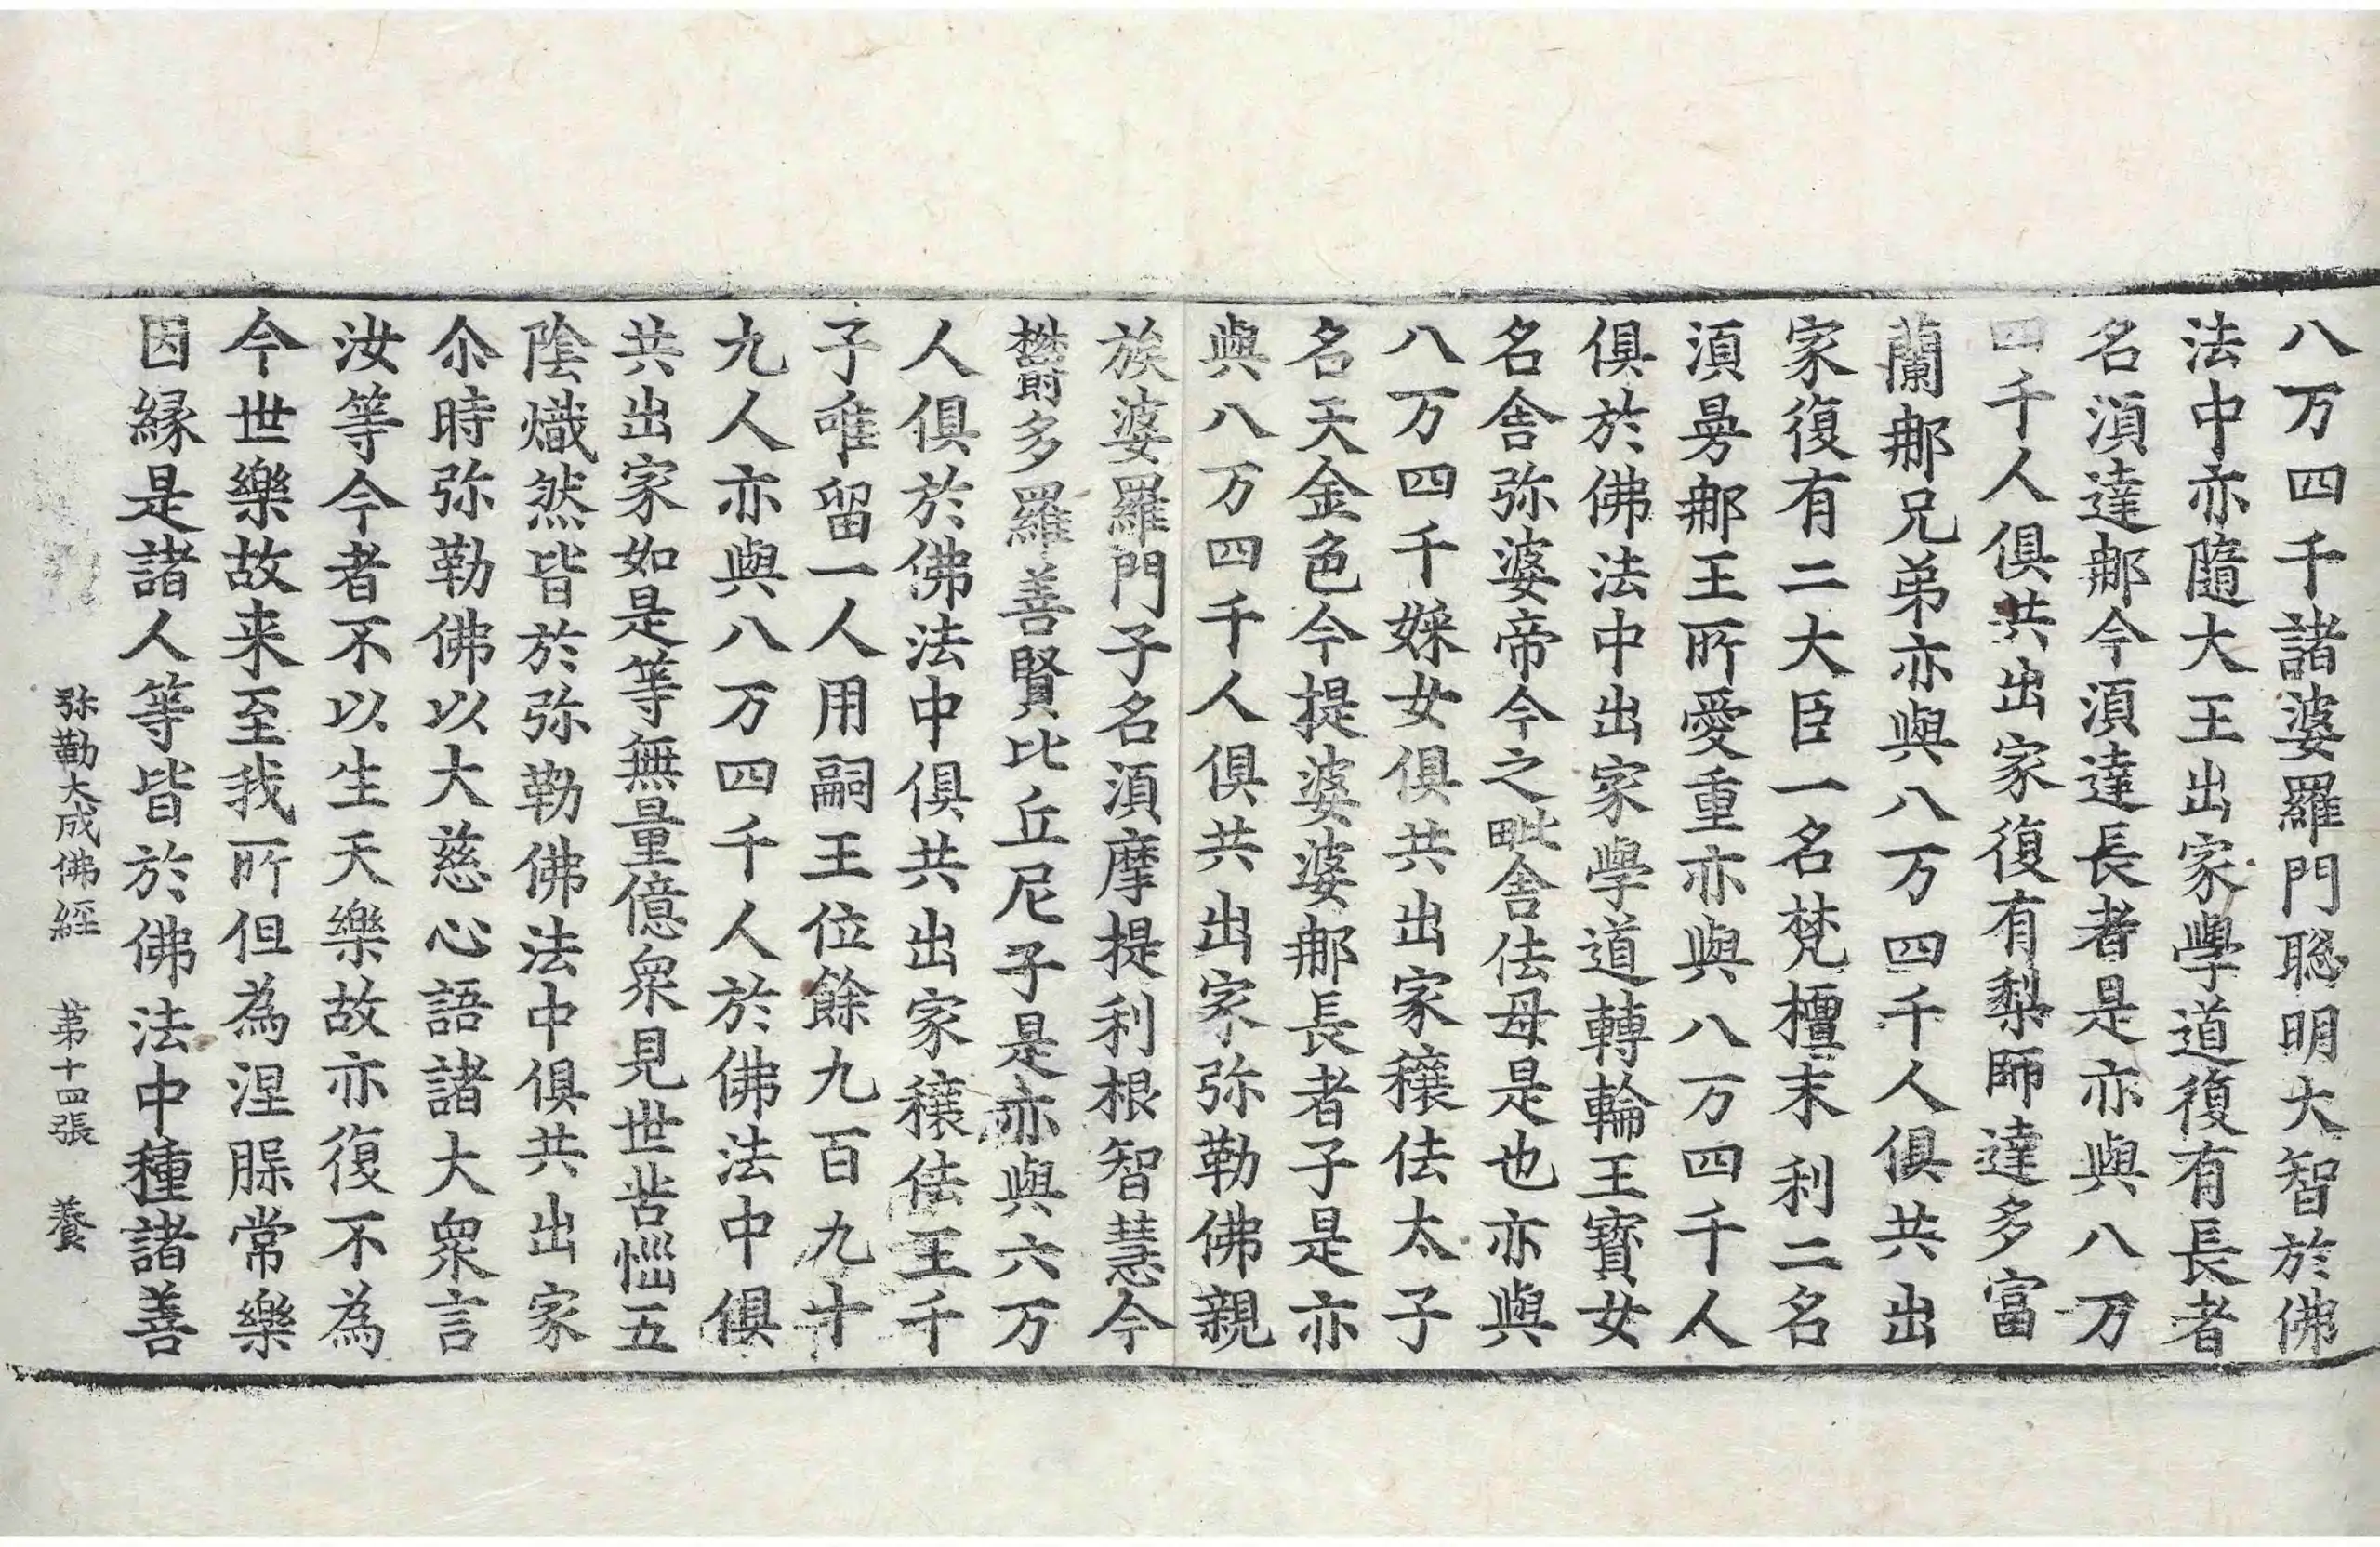 八万四千諸婆羅門聡明大智於佛
法中亦隨大王出家學道復有長者
名湏達郍今湏達長者是亦與八万
四千人俱共出家復有梨師達多富
蘭郍兄弟亦與八万四千人俱共出
家復有二大臣一名梵檀末利二名
湏曼郍王所愛重亦與八万四千人
俱於佛法中出家學道轉輪王寳女
名舍弥婆帝今之毗舍佉母是也亦與
八万四千婇女俱共出家穰佉太子
名天金色今提婆婆郍長者子是亦
與八万四千人俱共出家弥勒佛親
族婆羅門子名湏摩提利根智慧今
欝多羅善賢比丘尼子是亦與六万
人俱於佛法中俱共出家穰佉王千
子唯留一人用嗣王位餘九百九十
九人亦與八万四千人於佛法中俱
共出家如是等無量億衆見世苦惱五
陰熾然皆於弥勒佛法中俱共出家
尒時弥勒佛以大慈心語諸大衆言
汝等今者不以生天樂故亦復不為
今世樂故来至我所但為涅槃常樂
因縁是諸人等皆於佛法中種諸善
弥勒大成佛經 苐十四張 養